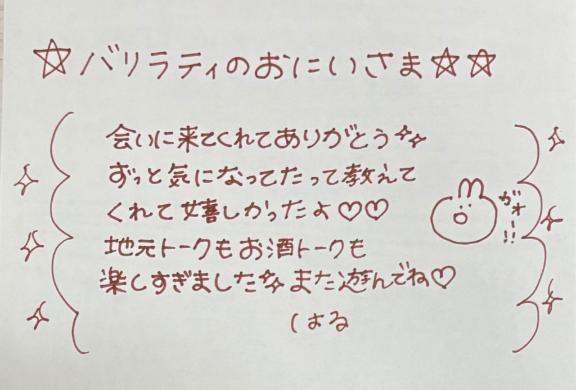 ☆バリラティのおにいさま☆☆
会いに来てくれてありがとう✨
ずっと気になってたって教えて
くれて嬉しかったよ♡♡
ガオー!!
地元トークもお酒トークも
楽しすぎました✨また遊んでね♡
はる